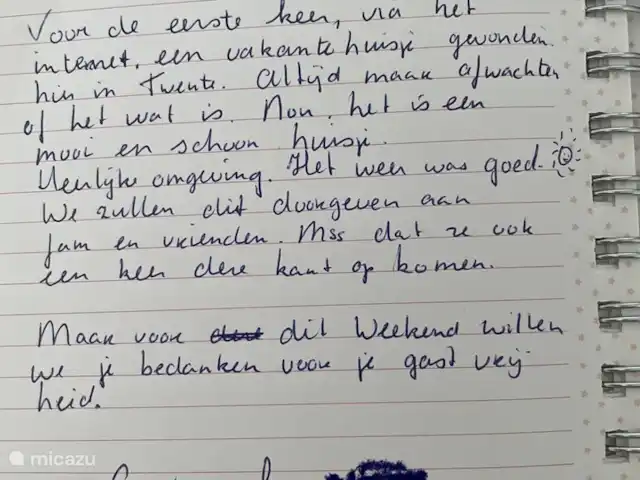 Voor de eerste keer, via het
internet, een vakantehuisje gevonden.
hier in Twente. Altijd maar afwachten
of het wat is. Nou, het is een
mooi en schoon huisje.
Heerlijke omgeving. Het weer was goed.
We zullen dit doorgeven aan
fam en vrienden. Mss dat ze ook
een keer deze kant op komen.
Maar voor dit weekend willen
we je bedanken voor je gast vrij
heid.
micazu